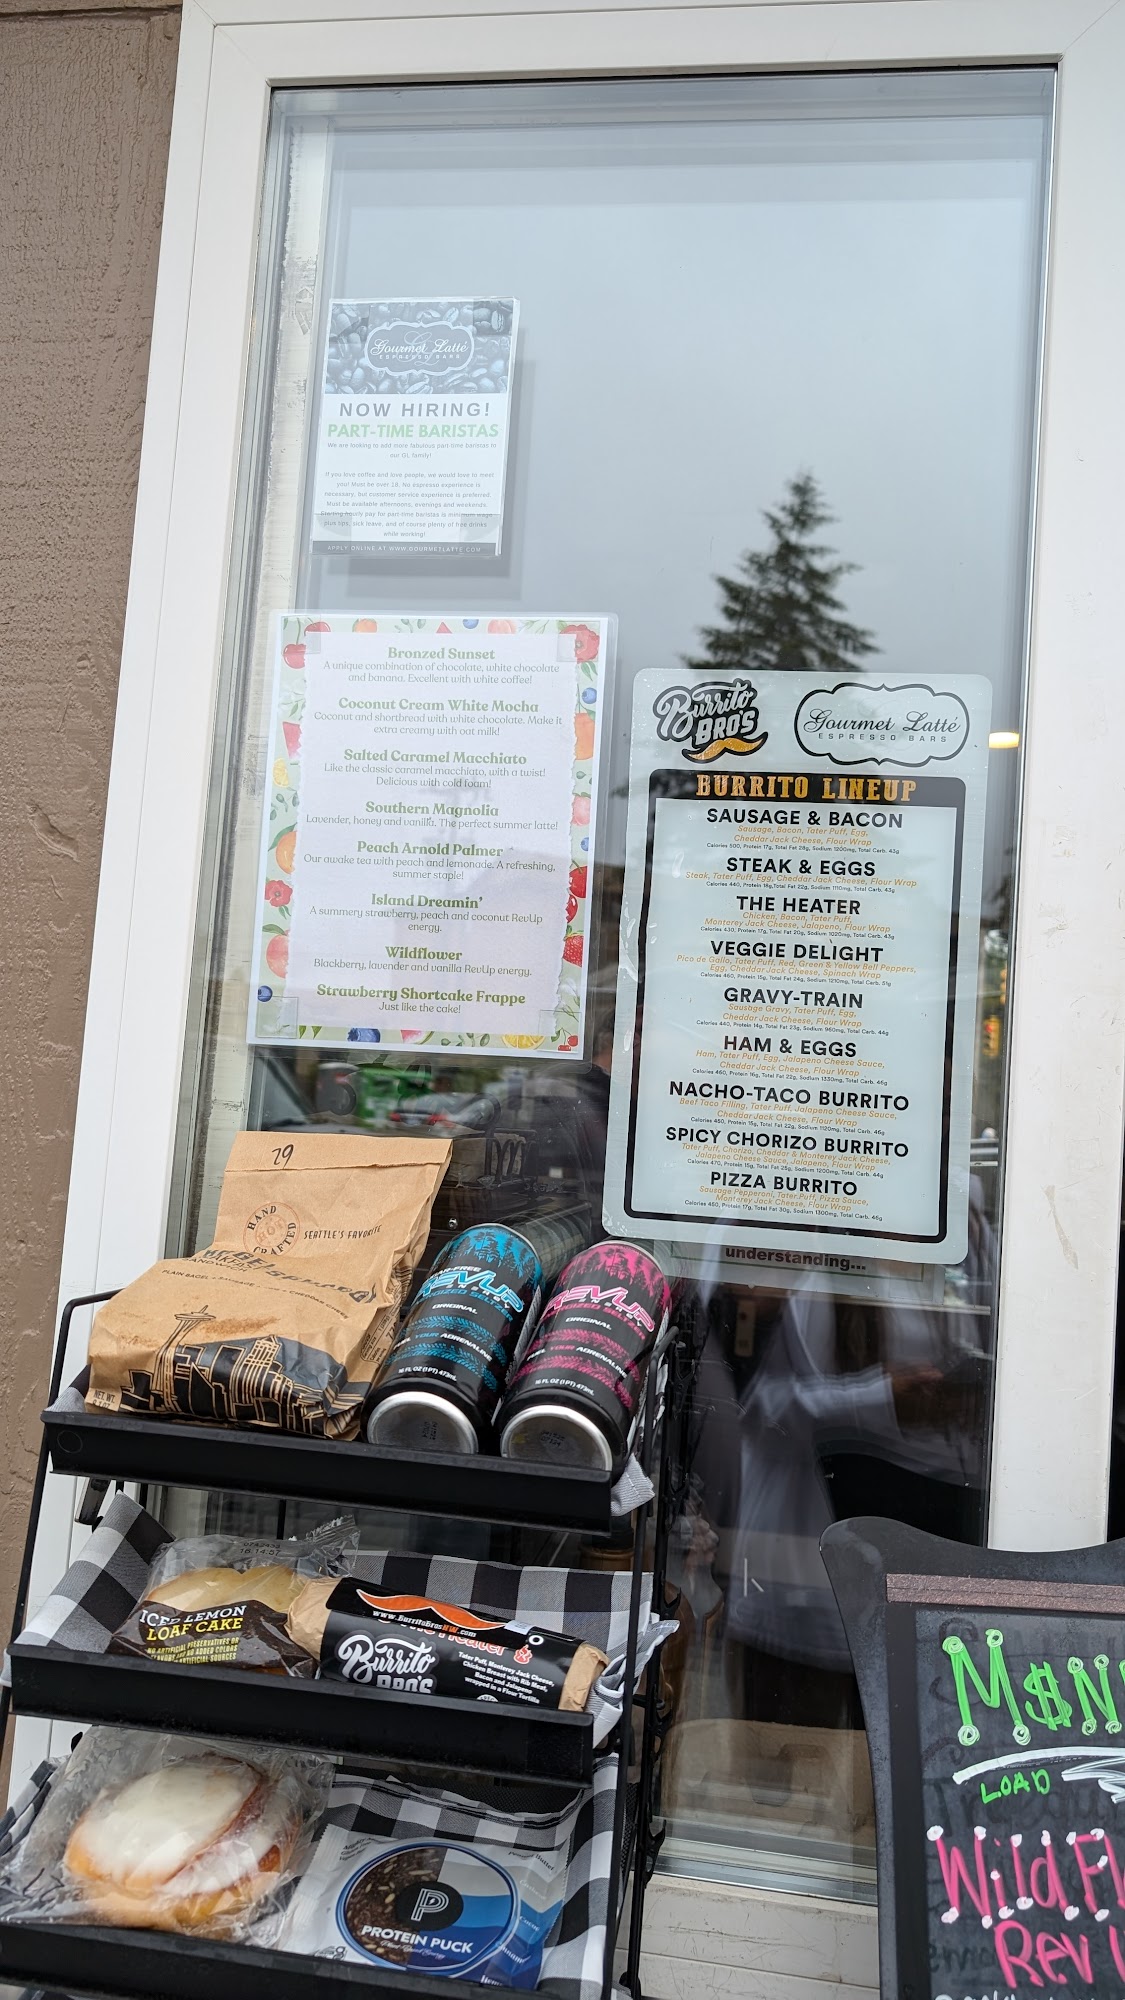 Gourmet Latté
ESPRESSO BARS
NOW HIRING!
PART-TIME BARISTAS
We are looking to add more fabulous part-time baristas to
our GL family!
If you love coffee and love people, we would love to meet
you! Must be over 18, No espresso experience is
necessary, but customer service experience is preferred.
Must be available afternoons, evenings and weekends.
Starting hourly pay for part-time baristas is minimum wage
plus tips, sick leave, and of course plenty of free drinks
while working!
APPLY ONLINE AT WWW.GOURMETLATTE.COM
Bronzed Sunset
A unique combination of chocolate, white chocolate
and banana. Excellent with white coffee!
Coconut Cream White Mocha
Coconut and shortbread with white chocolate. Make it
extra creamy with oat milk!
Salted Caramel Macchiato
Like the classic caramel macchiato, with a twist!
Delicious with cold foam!
Southern Magnolia
Lavender, honey and vanilla. The perfect summer latte!
Peach Arnold Palmer
Our awake tea with peach and lemonade. A refreshing,
summer staple!
Island Dreamin'
A summery strawberry, peach and coconut RevUp
energy.
Wildflower
Blackberry, lavender and vanilla RevUp energy.
Strawberry Shortcake Frappe
Just like the cake!
Burrito
BRO'S
Gourmet Latté
ESPRESSO BARS
BURRITO LINEUP
SAUSAGE & BACON
Sausage, Bacon, Tater Puff, Egg,
Cheddar Jack Cheese, Flour Wrap
Calories 500, Protein 17g, Total Fat 28g, Sodium 1200mg, Total Carb. 43g
STEAK & EGGS
Steak, Tater Puff, Egg, Cheddar Jack Cheese, Flour Wrap
Calories 440, Protein 18g, Total Fat 22g, Sodium 1110mg, Total Carb. 43g
THE HEATER
Chicken, Bacon, Tater Puff,
Monterey Jack Cheese, Jalapeno, Flour Wrap
Calories 430, Protein 17g, Total Fat 20g, Sodium 1020mg, Total Carb. 43g
VEGGIE DELIGHT
Pico de Gallo, Tater Puff, Red, Green & Yellow Bell Peppers,
Egg, Cheddar Jack Cheese, Spinach Wrap
Calories 460, Protein 15g, Total Fat 24g, Sodium 1210mg, Total Carb. 51g
GRAVY-TRAIN
Sausage Gravy, Tater Puff, Egg,
Cheddar Jack Cheese, Flour Wrap
Calories 440, Protein 14g, Total Fat 23g, Sodium 960mg, Total Carb. 44g
HAM & EGGS
Ham, Tater Puff, Egg, Jalapeno Cheese Sauce,
Cheddar Jack Cheese, Flour Wrap
Calories 460, Protein 16g, Total Fat 22g, Sodium 1330mg, Total Carb. 46g
NACHO-TACO BURRITO
Beef Taco Filling, Tater Puff, Jalapeno Cheese Sauce,
Cheddar Jack Cheese, Flour Wrap
Calories 460, Protein 15g, Total Fat 22g, Sodium 1120mg, Total Carb. 46g
SPICY CHORIZO BURRITO
Tater Puff, Chorizo, Cheddar & Monterey Jack Cheese,
Jalapeno Cheese Sauce, Jalapeno, Flour Wrap
Calories 470, Protein 15g, Total Fat 25g, Sodium 1200mg, Total Carb. 44g
PIZZA BURRITO
Sausage Pepperoni, Tater Puff, Pizza Sauce,
Monterey Jack Cheese, Flour Wrap
Calories 450, Protein 17g, Total Fat 30g, Sodium 1300mg, Total Carb. 46g
understanding...
29
HAND
CRAFTED
SEATTLE'S FAVORITE
PLAIN BAGEL
NET WT.
REVUP
ENERGY
ORIGINAL
YOUR ADRENALINE
16 FL OZ (1 PT) 473mL
REVUP
ORIGINAL
YOUR ADRENALINE
16 FL OZ (1 PT) 473mL
16:14:57
ICED LEMON
LOAF CAKE
NO ARTIFICIAL PRESERVATIVES OR
www.BurritoBrosNW.com
Burrito
BRO'S
Tater Puff, Monterey Jack Cheese,
Chicken Breast with Rib Meat,
Bacon and Jalapeno
wrapped in a Flour Tortilla
P
PROTEIN PUCK
Plant-Based Energy
M$N
LOAD
Wild Fl
Rev